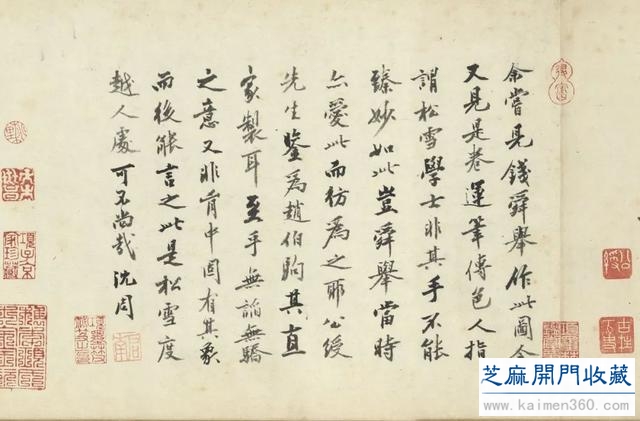 余嘗見錢舜舉作此圖今
又見是卷運筆傳色人指
謂松雪學士非其手不能
臻妙如此豈舜舉當時
亦愛此而彷為之耶公綬
先生鑒為趙伯駒其直
家製耳至乎無諂無驕
之意又非胷中固有其象
而後能言之此是松雪度
越人處可不尚哉沈周
項子京家珍藏
芝麻開門收藏
www.kaimen360.com